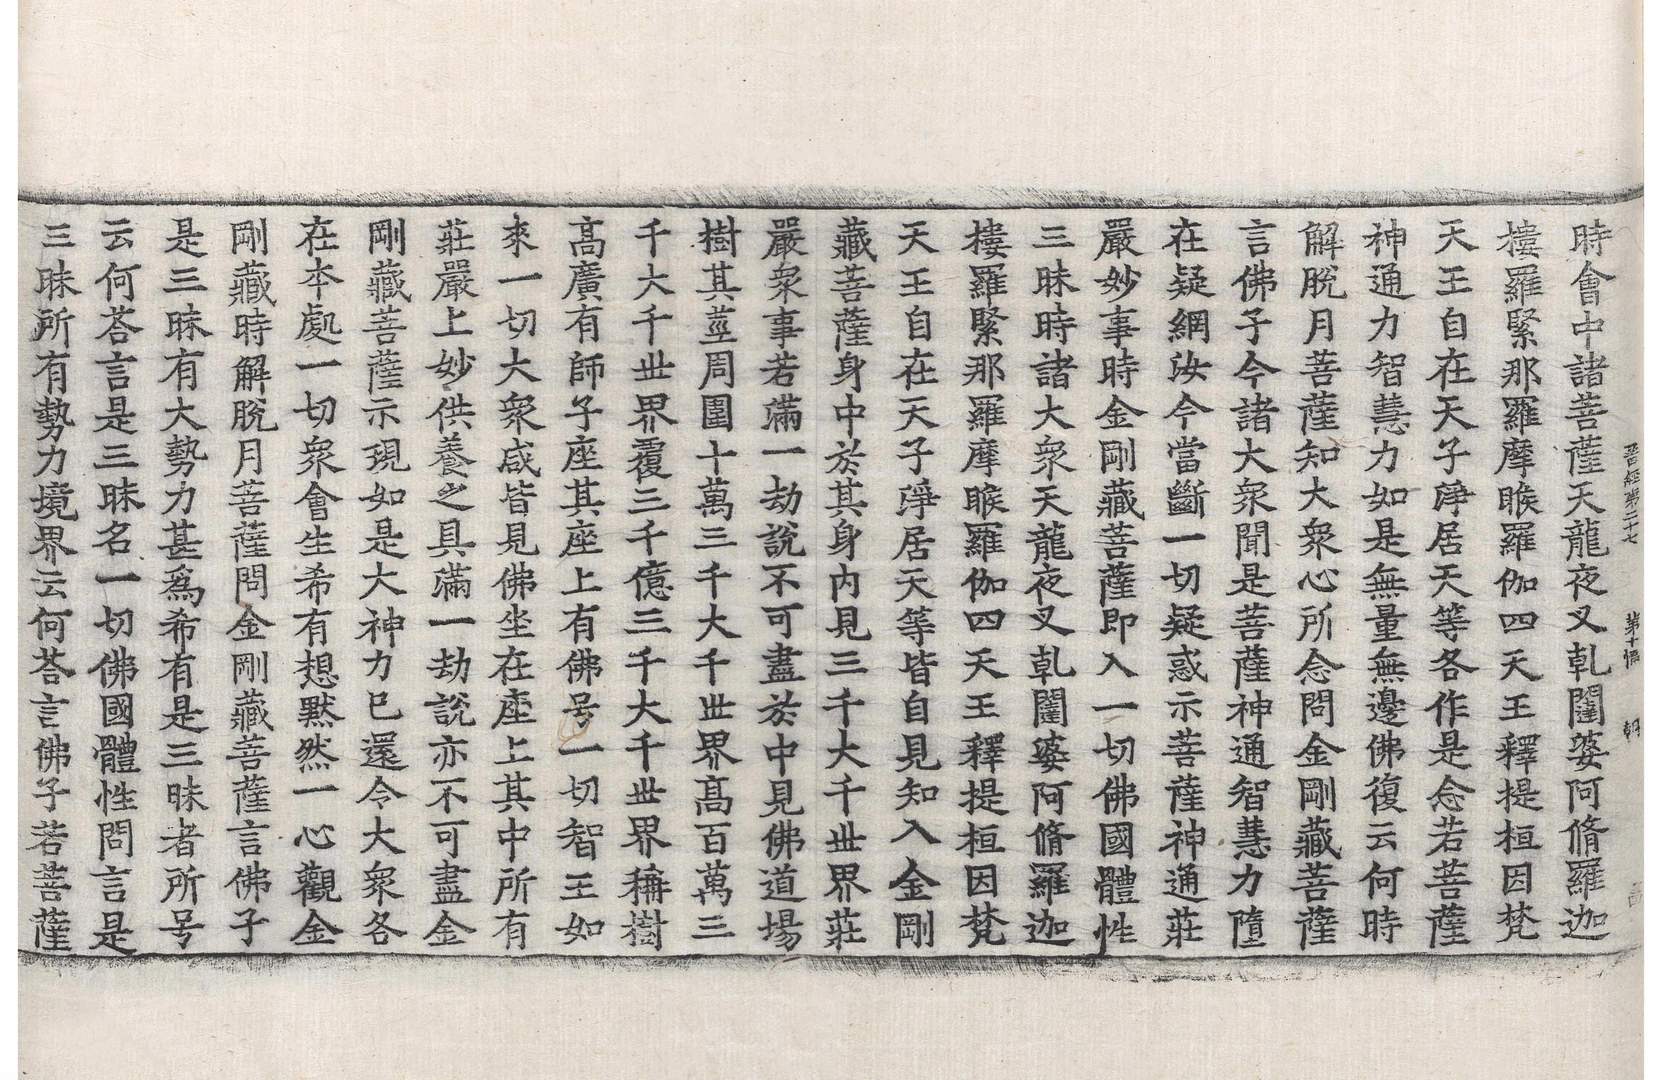 晉經第二十七　第十幅　朝
時會中諸菩薩天龍夜叉乹闥婆阿脩羅迦
樓羅緊那羅摩睺羅伽四天王釋提桓因梵
天王自在天子淨居天等各作是念若菩薩
神通力智慧力如是無量無邊佛復云何時
解脫月菩薩知大衆心所念問金剛藏菩薩
言佛子今諸大衆聞是菩薩神通智慧力墮
在疑網汝今當斷一切疑惑示菩薩神通莊
嚴妙事時金剛藏菩薩即入一切佛國體性
三昧時諸大衆天龍夜叉乹闥婆阿脩羅迦
樓羅緊那羅摩睺羅伽四天王釋提桓因梵
天王自在天子淨居天等皆自見知入金剛
藏菩薩身中於其身內見三千大千世界莊
嚴衆事若滿一劫說不可盡於中見佛道場
樹其莖周圍十萬三千大千世界髙百萬三
千大千世界覆三千億三千大千世界稱樹
髙廣有師子座其座上有佛号一切智王如
來一切大衆咸皆見佛坐在座上其中所有
莊嚴上妙供養之具滿一劫說亦不可盡金
剛藏菩薩示現如是大神力已還令大衆各
在本處一切衆會生希有想默然一心觀金
剛藏時解脫月菩薩問金剛藏菩薩言佛子
是三昧有大勢力甚爲希有是三昧者所号
云何荅言是三昧名一切佛國體性問言是
三昧所有勢力境界云何荅言佛子若菩薩